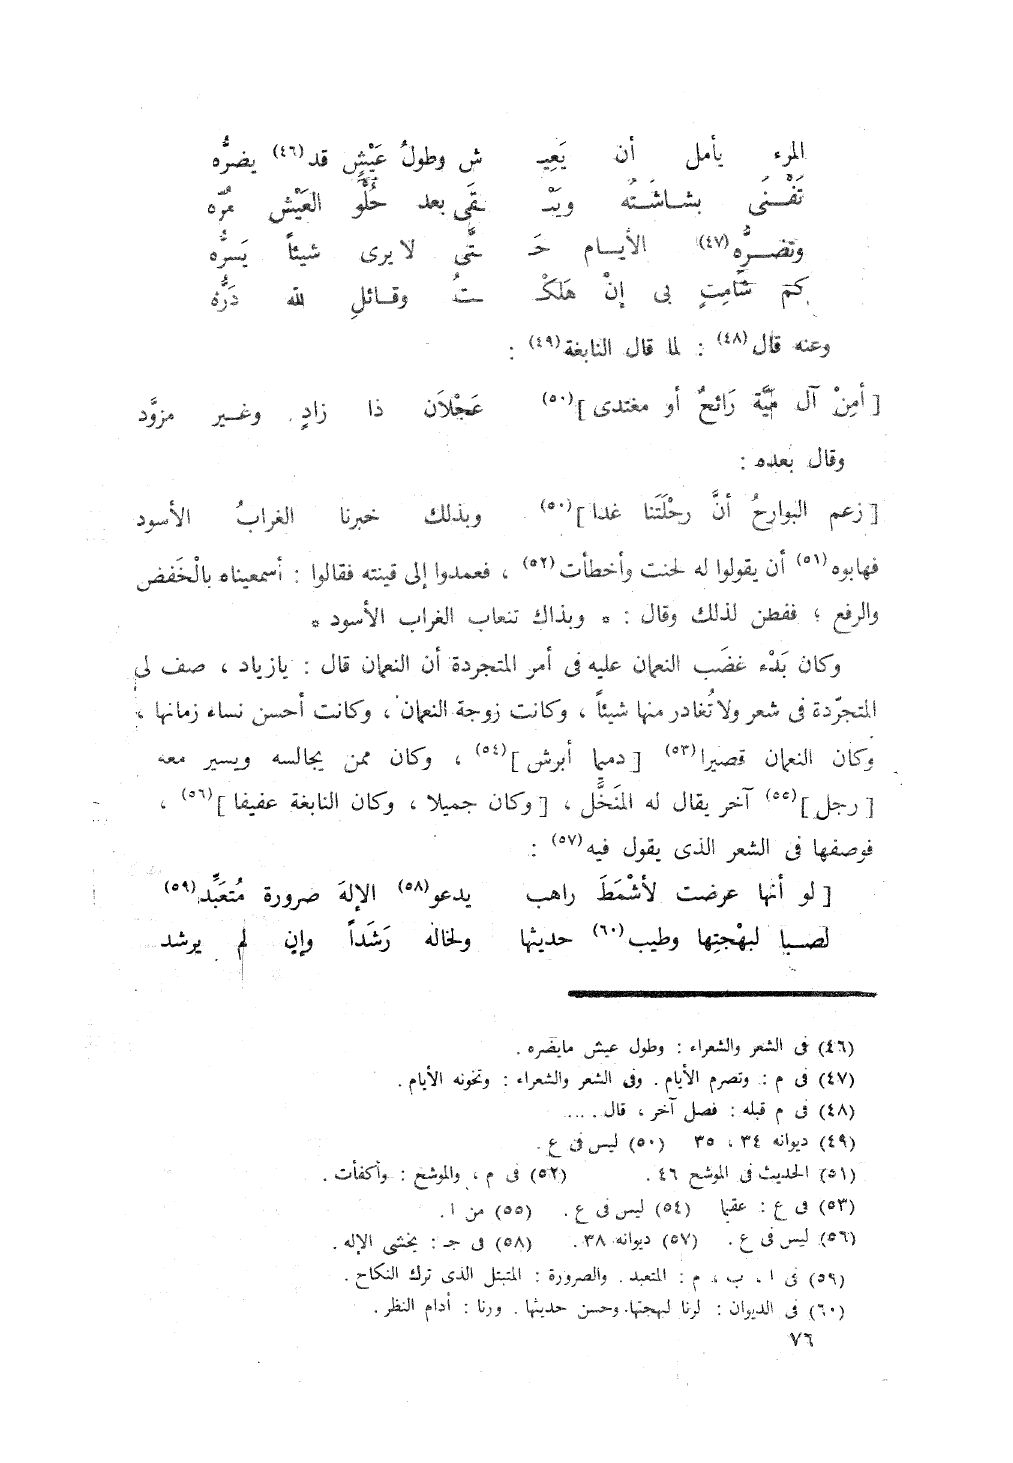 المرء يأمل أن يَعِيـ ش وطولُ عَيْشٍ قد(٤٦) يضرُّه
تَفْـنَى بشـاشَـتُه ويَبْـ ـقَى بعد حُلْو العَيْش مُرّه
وتضـرُّه(٤٧) الأيـام حَـ ـتَّى لا يرى شيئاً يَسرُّه
كم شَامِتٍ بى إنْ هَلَكْـ ـتُ وقـائلِ لله دَرُّه
وعنه قال(٤٨) : لما قال النابغة(٤٩) :
[ أمِنْ آل مَيَّة رَائحٌ أو مغتدى ](٥٠) عَجْلاَن ذا زادٍ وغـير مزوَّد
وقال بعده :
[ زعم البوارحُ أنَّ رحْلَتَنا غدا ](٥٠) وبذلك خبرنا الغرابُ الأسود
فهابوه(٥١) أن يقولوا له لحنت وأخطأت(٥٢) ، فعمدوا إلى قينته فقالوا : أسمعيناه بالْخَفض
والرفع ؛ ففطن لذلك وقال : * وبذاك تنعاب الغراب الأسود *
وكان بَدْء غضَب النعمان عليه فى أمر المتجردة أن النعمان قال : يازياد ، صف لى
المتجرّدة فى شعر ولا تُغادر منها شيئاً ، وكانت زوجة النعمان ، وكانت أحسن نساء زمانها ،
وكان النعمان قصيرا(٥٣) [ دميما أبرش ](٥٤) ، وكان ممن يجالسه ويسير معه
[ رجل ](٥٥) آخر يقال له المنَخَّل ، [ وكان جميلا ، وكان النابغة عفيفا ](٥٦) ،
فوصفها فى الشعر الذى يقول فيه(٥٧) :
[ لو أنها عرضت لأشْمَطَ راهب يدعو(٥٨) الإلهَ صرورة مُتعَبِّد(٥٩)
لصـبا لبهْجتِها وطيب(٦٠) حديثها ولخاله رَشَداً وإن لم يرشد
(٤٦) فى الشعر والشعراء : وطول عيش مايضره .
(٤٧) فى م : وتصرم الأيام . وفى الشعر والشعراء : وتخونه الأيام .
(٤٨) فى م قبله : فصل آخر ، قال ....
(٤٩) ديوانه ٣٤ ، ٣٥ (٥٠) ليس فى ع .
(٥١) الحديث فى الموشح ٤٦ . (٥٢) فى م ، والموشح : وأكفأت .
(٥٣) فى ع : عقيما (٥٤) ليس فى ع . (٥٥) من ا .
(٥٦) ليس فى ع . (٥٧) ديوانه ٣٨ . (٥٨) فى جـ : يخشى الإله .
(٥٩) فى ا ، ب ، م : المتعبد . والصرورة : المتبتل الذى ترك النكاح .
(٦٠) فى الديوان : لرنا لبهجتها وحسن حديثها . ورنا : أدام النظر .
٧٦